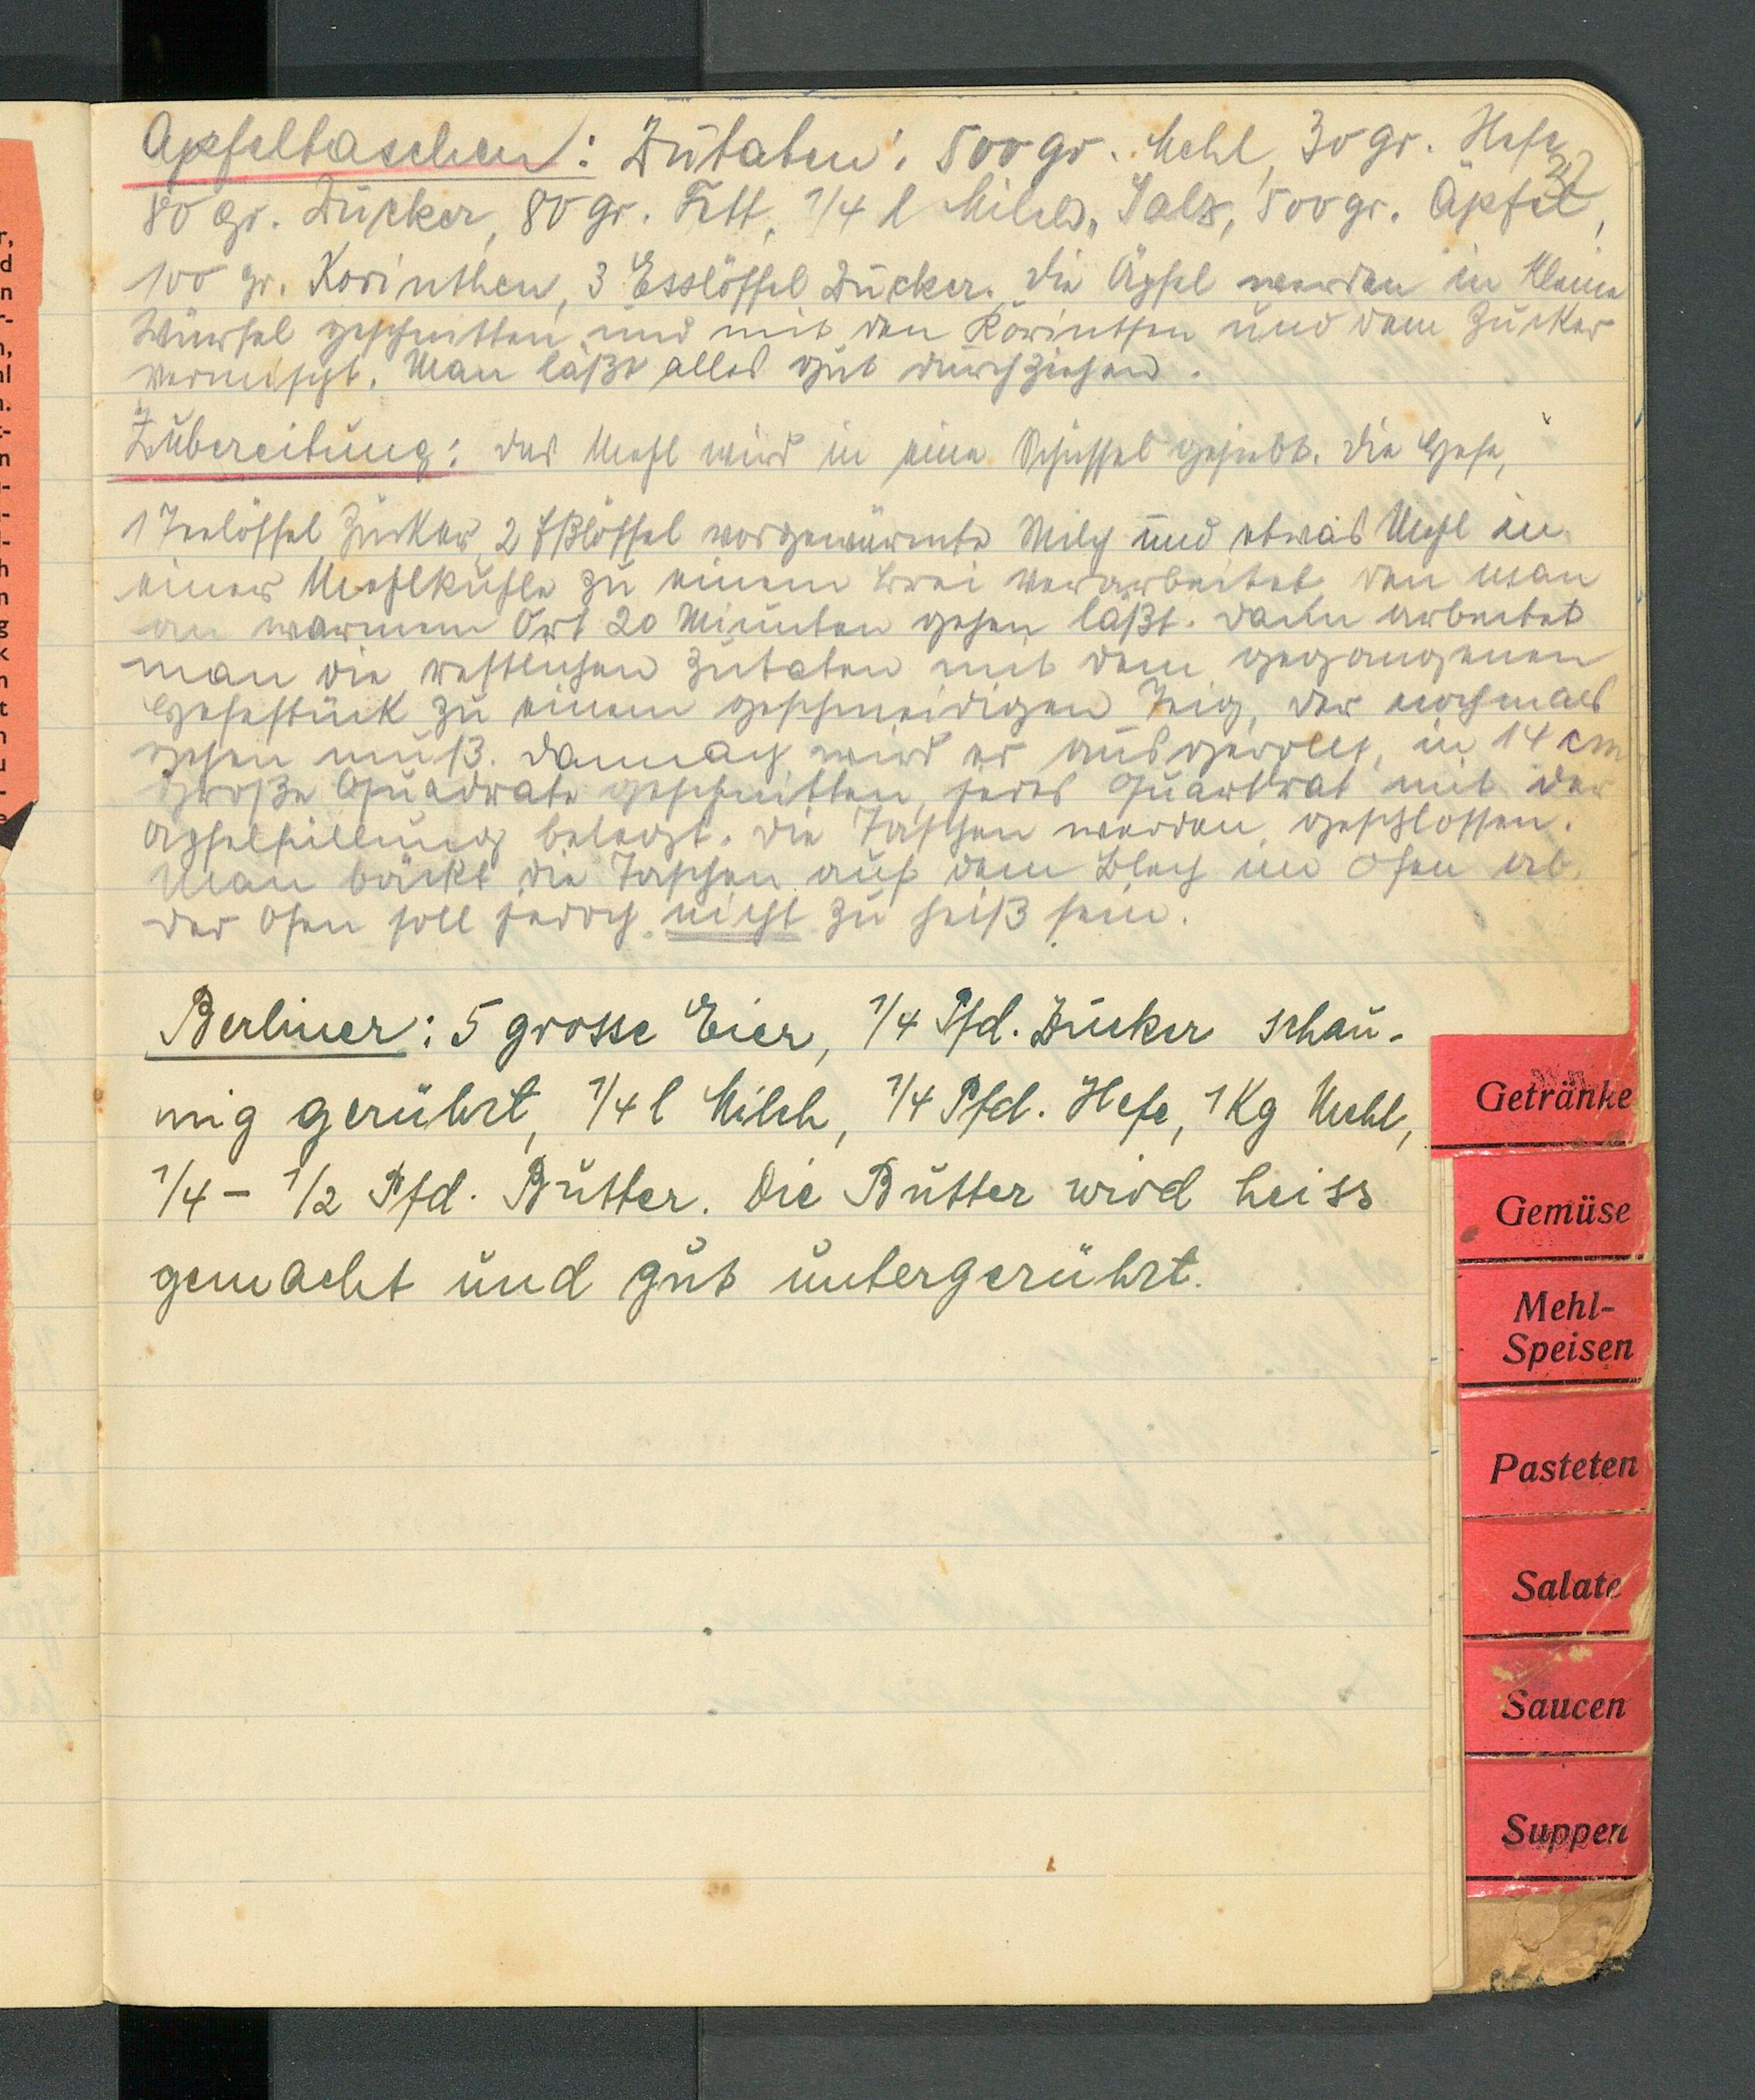 Apfeltaschen: Zutaten: 500 gr. Mehl, 30 gr. Hefe,
32
80 gr. Zucker, 80 gr. Fett, 1/4 l Milch, Salz, 500 gr. Äpfel,
100 gr. Korinthen, 3 Esslöffel Zucker. Die Äpfel werden in kleine
Würfel geschnitten und mit den Korinthen und dem Zucker
vermischt. Man läßt alles gut durchziehen.
Zubereitung: Das Mehl wird in eine Schüssel gesiebt. Die Hefe,
1 Teelöffel Zucker, 2 Eßlöffel vorgewärmte Milch und etwas Mehl in
einer Mehlkuhle zu einem Brei verarbeitet, den man
an warmem Ort 20 Minuten gehen läßt. Dann arbeitet
man die restlichen Zutaten mit dem gegangenen
Hefestück zu einem geschmeidigen Teig, der nochmals
gehen muß. Danach wird er ausgerollt, in 14 cm
große Quadrate geschnitten, jedes Quadrat mit der
Apfelfüllung belegt. Die Taschen werden geschlossen.
Man bäckt die Taschen auf dem Blech im Ofen ab.
Der Ofen soll jedoch nicht zu heiß sein.
Berliner: 5 grosse Eier, 1/4 Pfd. Zucker schau-
mig gerührt, 1/4 l Milch, 1/4 Pfd. Hefe, 1 Kg Mehl,
1/4 - 1/2 Pfd. Butter. Die Butter wird heiss
gemacht und gut untergerührt.
Getränke
Gemüse
Mehl-
Speisen
Pasteten
Salate
Saucen
Suppen